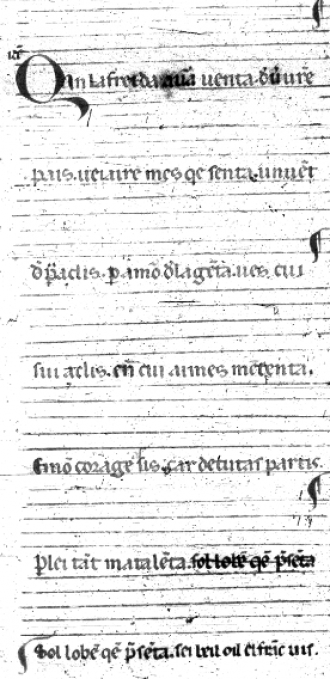 Qan la freida aura uenta. deu͂ ur̃e
pais. ueiaire mes qe senta. un uẽt
đ p̃adis. ꝑ amõ đ la gẽta. ues cui
sui aclis. eñ cui aimes mẽtenta.
E mõ corage sis. car de tutas partis.
ꝑ lei tãt matalẽta. sol lo bẽ qẽ p̃sẽta
Sol lo bẽ qẽ p̃sẽta. sei beil oil el frãc uis.